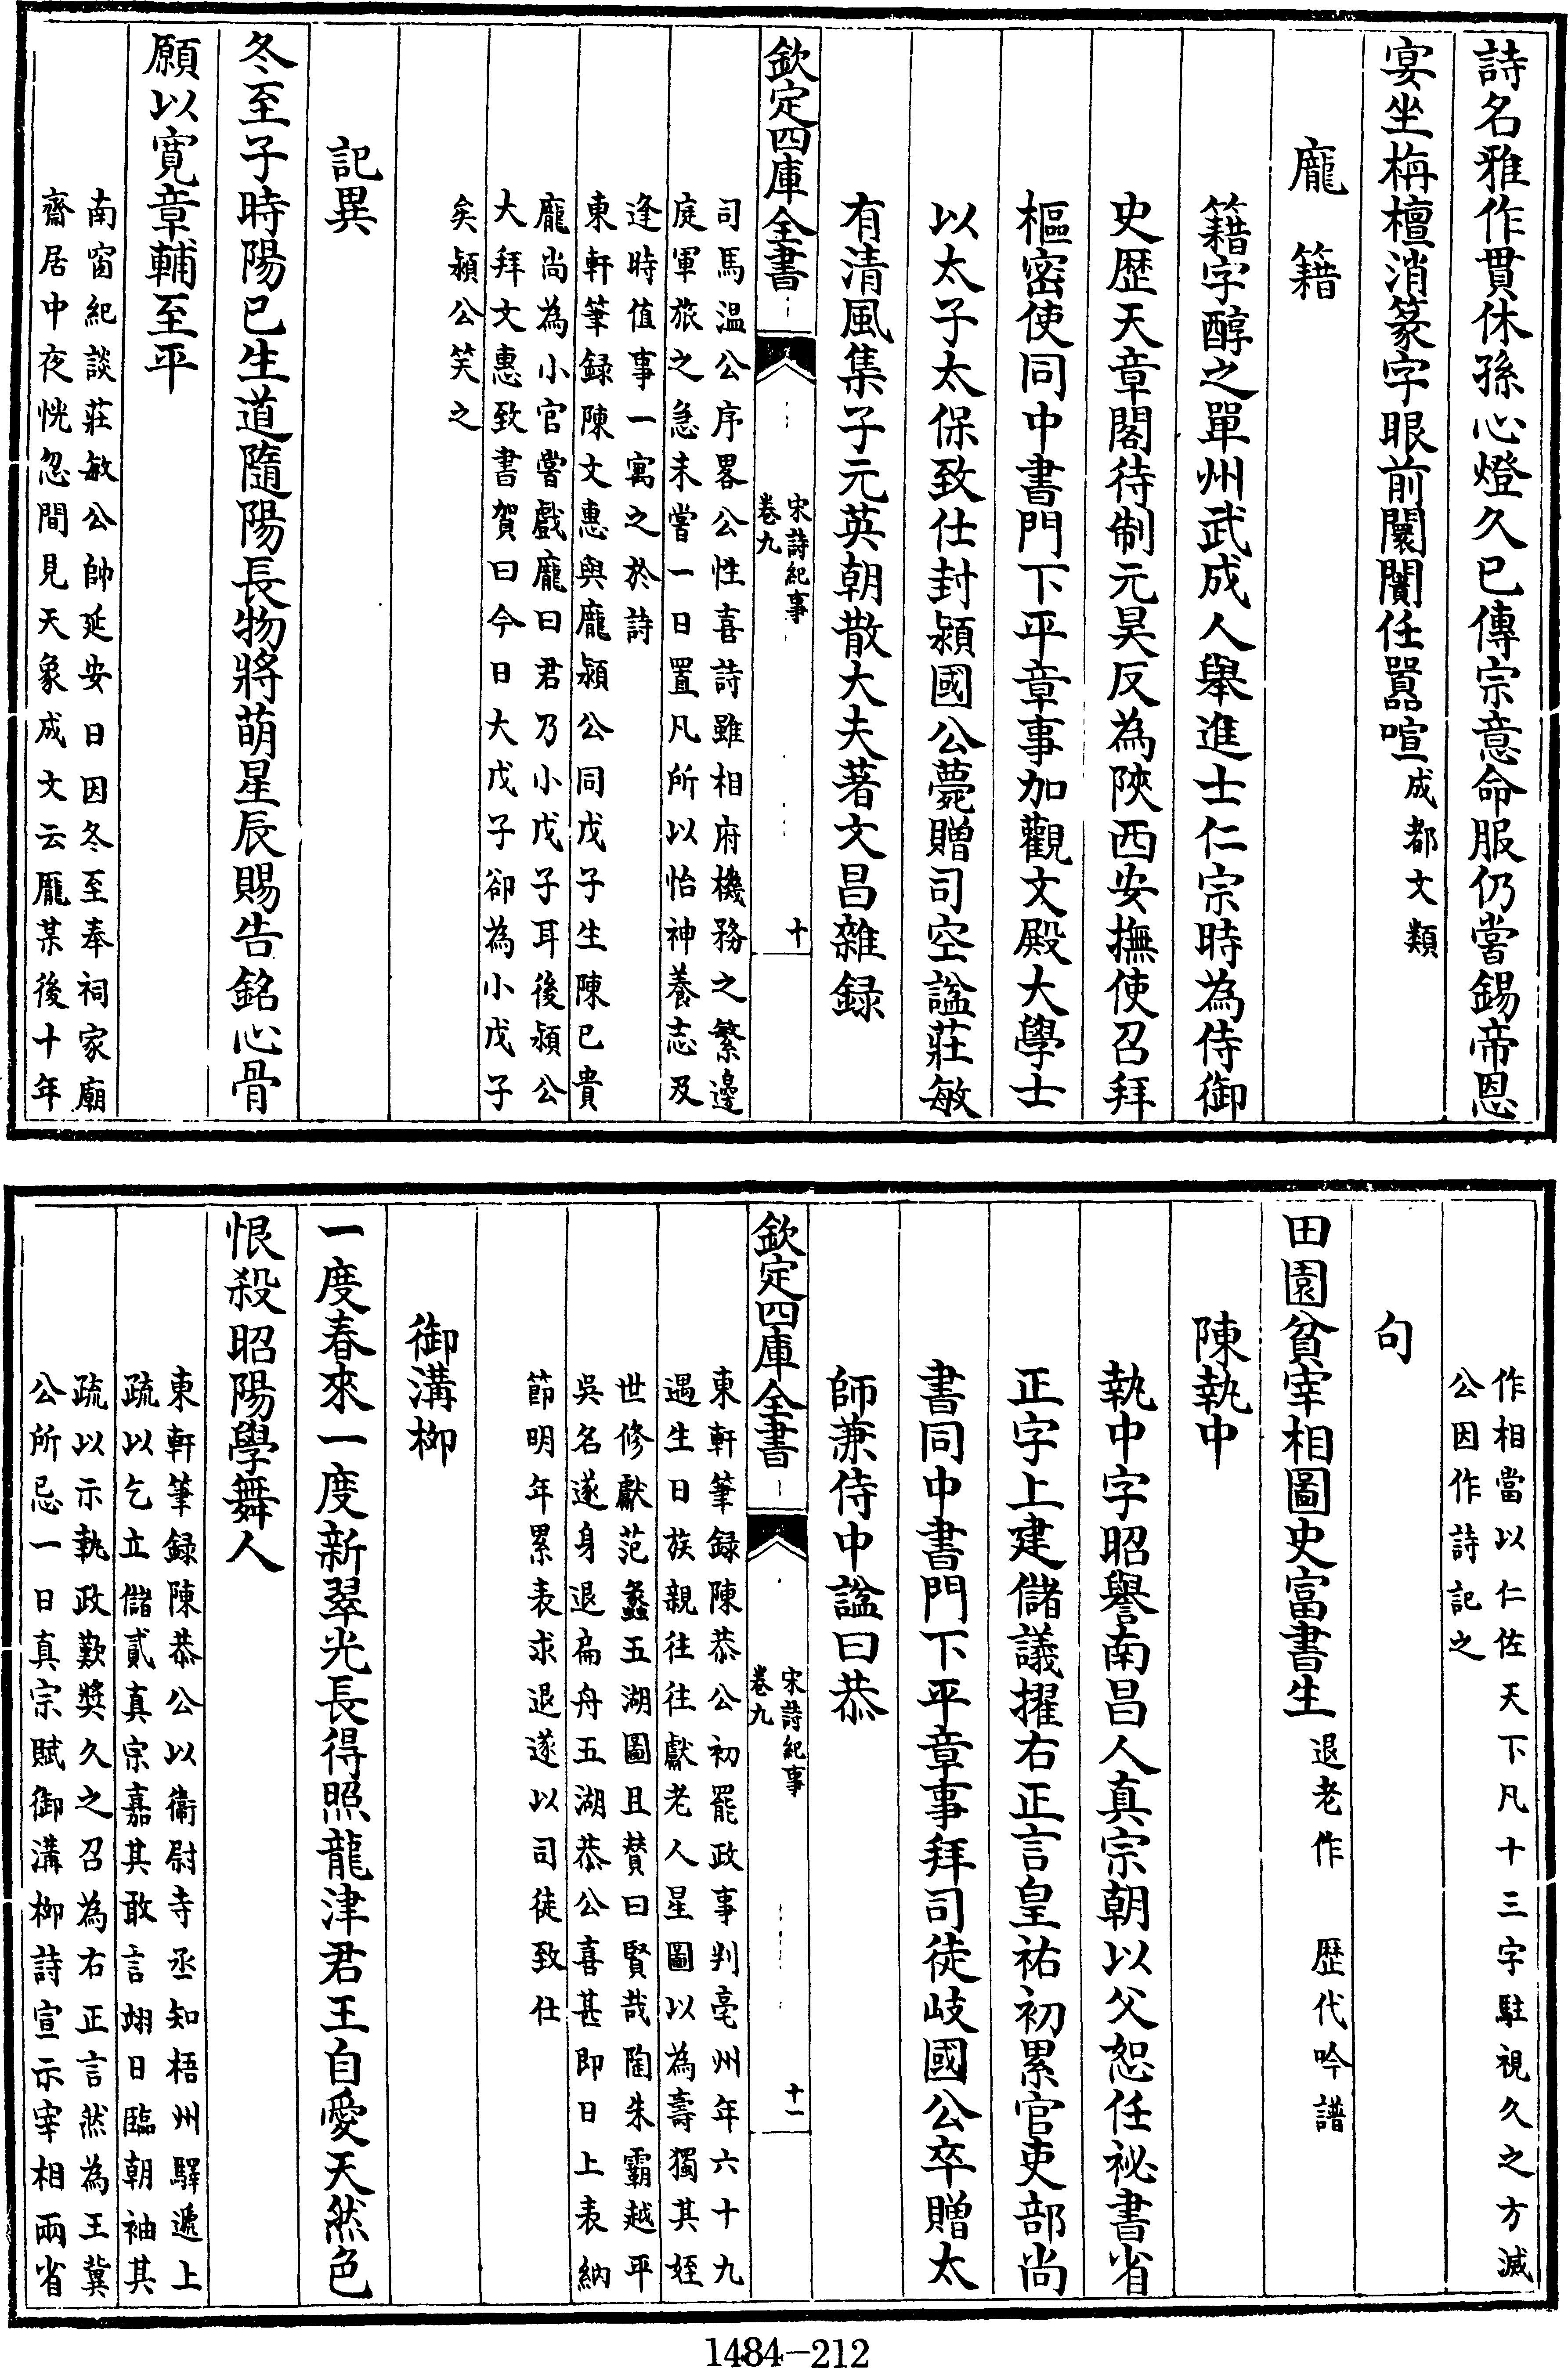 詩名雅作貫休孫心燈久已傳宗意命服仍嘗錫帝恩
宴坐栴檀消篆字眼前闤闠任囂喧成都文類
龐籍
籍字醇之單州武成人舉進士仁宗時為侍御
史歴天章閣待制元昊反為陜西安撫使召拜
樞密使同中書門下平章事加觀文殿大學士
以太子太保致仕封潁國公薨贈司空諡莊敏
有清風集子元英朝散大夫著文昌雜録
欽定四庫全書
宋詩紀事
卷九
十
司馬温公序畧公性喜詩雖相府機務之繁邊
庭軍旅之急未嘗一日置凡所以怡神養志及
逢時值事一寓之於詩
東軒筆録陳文惠與龐潁公同戊子生陳已貴
龐尚為小官嘗戲龐曰君乃小戊子耳後潁公
大拜文惠致書賀曰今日大戊子卻為小戊子
矣潁公笑之
記異
冬至子時陽已生道隨陽長物將萌星辰賜告銘心骨
願以寛章輔至平
南窗紀談莊敏公帥延安日因冬至奉祠家廟
齋居中夜恍忽間見天象成文云龎某後十年
作相當以仁佐天下凡十三字駐視久之方滅
公因作詩記之
句
田園貧宰相圖史富書生退老作 歴代吟譜
陳執中
執中字昭譽南昌人真宗朝以父恕任祕書省
正字上建儲議擢右正言皇祐初累官吏部尚
書同中書門下平章事拜司徒岐國公卒贈太
師兼侍中諡曰恭
欽定四庫全書
宋詩紀事
卷九
十一
東軒筆録陳恭公初罷政事判亳州年六十九
遇生日族親往往獻老人星圖以為壽獨其姪
世修獻范蠡五湖圖且賛曰賢哉陶朱霸越平
吳名遂身退扁舟五湖恭公喜甚即日上表納
節明年累表求退遂以司徒致仕
御溝柳
一度春來一度新翠光長得照龍津君王自愛天然色
恨殺昭陽學舞人
東軒筆録陳恭公以衛尉寺丞知梧州驛遞上
疏以乞立儲貳真宗嘉其敢言翊日臨朝袖其
疏以示執政歎奬久之召為右正言然為王冀
公所忌一日真宗賦御溝柳詩宣示宰相兩省
1484-212